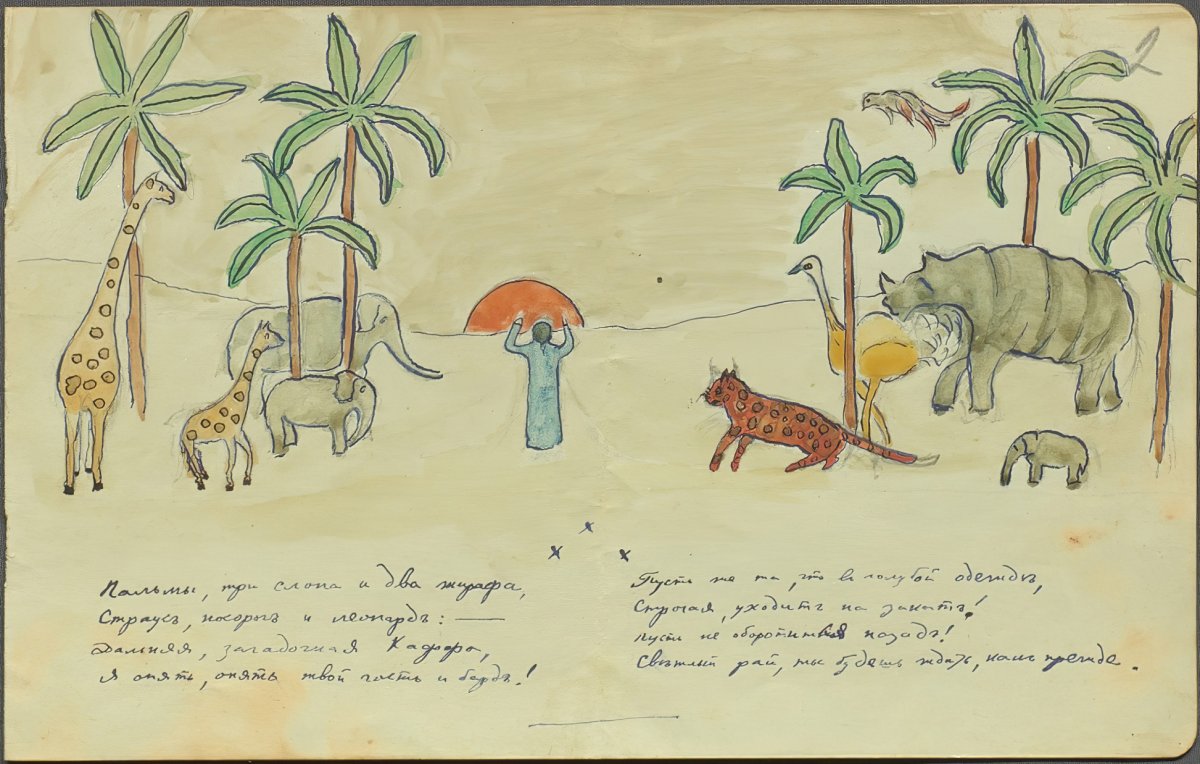 x
x x
Пальмы, три слона и два жирафа,
Страусъ, носорогъ и леопардъ: —
Дальняя, загадочная Каффа,
Я опять, опять твой гость и бардъ!
Пусть же та, что въ голубой одеждѣ,
Строгая, уходитъ на закатъ!
Пусть не оборотится назадъ!
Свѣтлый рай, ты будешь ждать, какъ прежде.